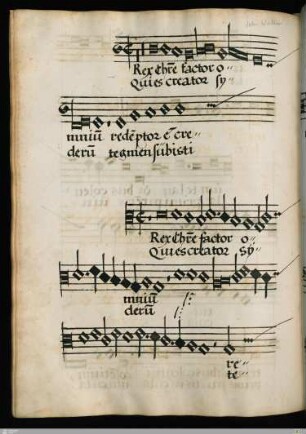 Rex Chr̄e factor o-
Qui es creator sy-
mniū redēptor ē cre-
derū tegmen subisti
Rex Chr̄e factor o-
Qui es creator sy-
mniū
derū
re-
te-